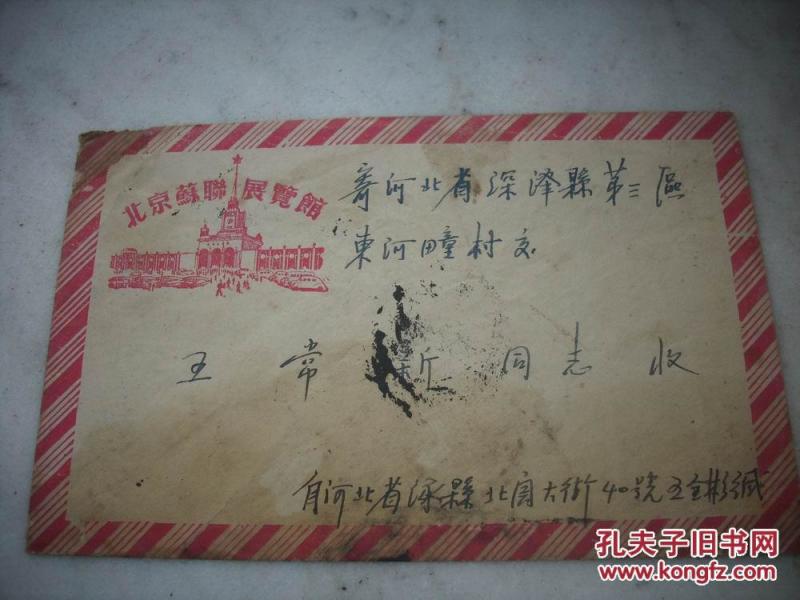 北京蘇聯展覽館
寄河北省深泽縣第三區
東河疃村交
王常新同志收
自河北省涿縣北関大街40號王全彬缄
孔夫子旧书网
www.kongfz.com